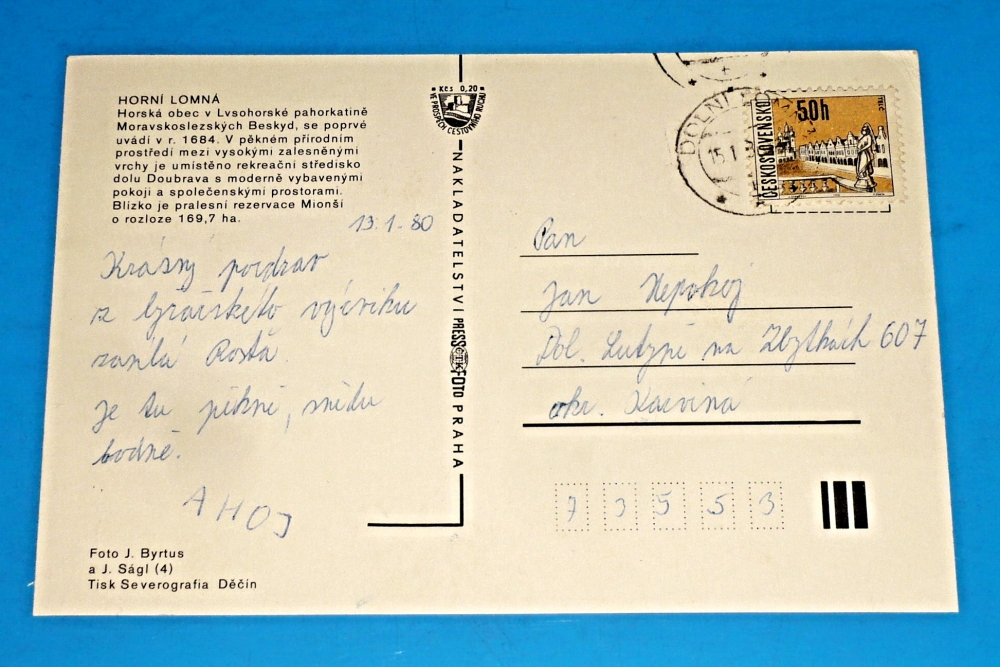 HORNÍ LOMNÁ
Horská obec v Lvsohorské pahorkatině
Moravskoslezských Beskyd, se poprvé
uvádí v r. 1684. V pěkném přírodním
prostředí mezi vysokými zalesněnými
vrchy je umístěno rekreační středisko
dolu Doubrava s moderně vybavenými
pokoji a společenskými prostorami.
Blízko je pralesní rezervace Mionší
o rozloze 169,7 ha.
13.1.80
Krásný pozdrav
z lyžařského výcviku
zasílá Rosťa.
Je tu pěkně, sněhu
hodně.
AHOJ
Foto J. Byrtus
a J. Ságl (4)
Tisk Severografia Děčín
Kčs 0,20
VE PROSPĚCH CESTOVNÍHO RUCHU
NAKLADATELSTVÍ PRESSFOTO PRAHA
ČTK
DOLNÍ
15.1
50h
TELČ
ČESKOSLOVENSKO
Pan
Jan Nepokoj
Dol. Lutyně na Zbytkách 607
okr. Karviná
73553